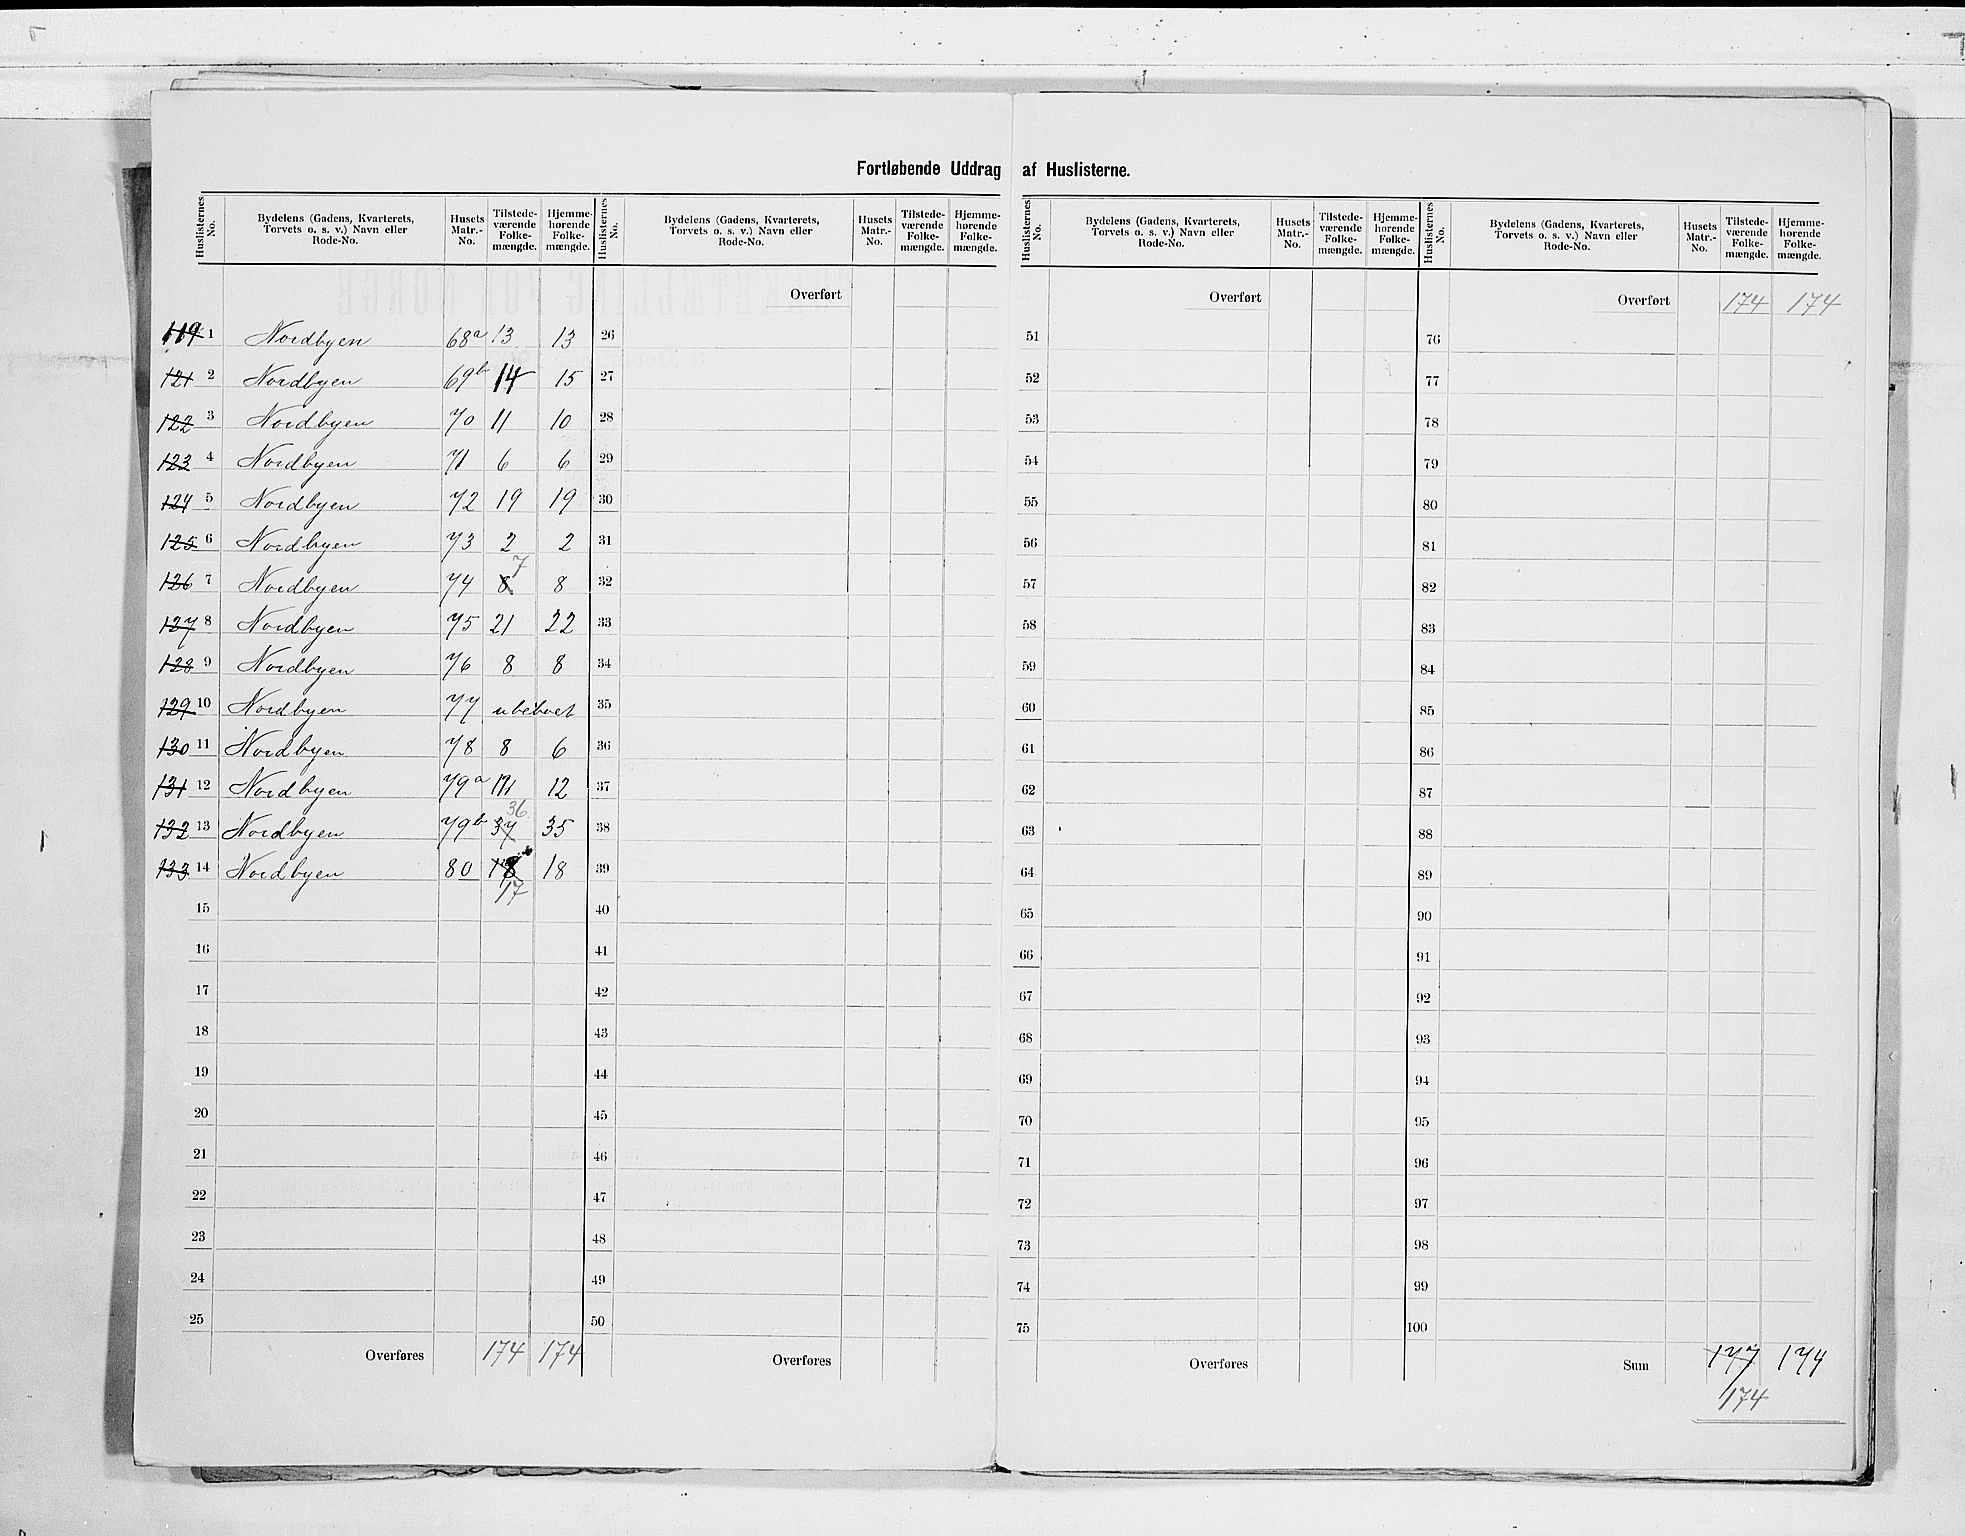 Fortløbende Uddrag af Huslisterne.
Huslisternes No. Bydelens (Gadens, Kvarterets, Torvets o. s. v.) Navn eller Rode-No. Husets Matr.-No. Tilstedeværende Folkemængde. Hjemmehørende Folkemængde.
119 1 Nordbyen 68a 13 13
121 2 Nordbyen 69b 14 15
122 3 Nordbyen 70 11 10
123 4 Nordbyen 71 6 6
124 5 Nordbyen 72 19 19
125 6 Nordbyen 73 2 2
126 7 Nordbyen 74 8 7 8
127 8 Nordbyen 75 21 22
128 9 Nordbyen 76 8 8
129 10 Nordbyen 77 ubeboet
130 11 Nordbyen 78 8 6
131 12 Nordbyen 79a 12
132 13 Nordbyen 79b 37 36 35
133 14 Nordbyen 80 18 17 18
15
16
17
18
19
20
21
22
23
24
25
Overføres 174 174
Huslisternes No. Bydelens (Gadens, Kvarterets, Torvets o. s. v.) Navn eller Rode-No. Husets Matr.-No. Tilstedeværende Folkemængde. Hjemmehørende Folkemængde.
Overført
26
27
28
29
30
31
32
33
34
35
36
37
38
39
40
41
42
43
44
45
46
47
48
49
50
Overføres
Huslisternes No. Bydelens (Gadens, Kvarterets, Torvets o. s. v.) Navn eller Rode-No. Husets Matr.-No. Tilstedeværende Folkemængde. Hjemmehørende Folkemængde.
Overført
51
52
53
54
55
56
57
58
59
60
61
62
63
64
65
66
67
68
69
70
71
72
73
74
75
Overføres
Huslisternes No. Bydelens (Gadens, Kvarterets, Torvets o. s. v.) Navn eller Rode-No. Husets Matr.-No. Tilstedeværende Folkemængde. Hjemmehørende Folkemængde.
Overført 174 174
76
77
78
79
80
81
82
83
84
85
86
87
88
89
90
91
92
93
94
95
96
97
98
99
100
Sum 177 174
174